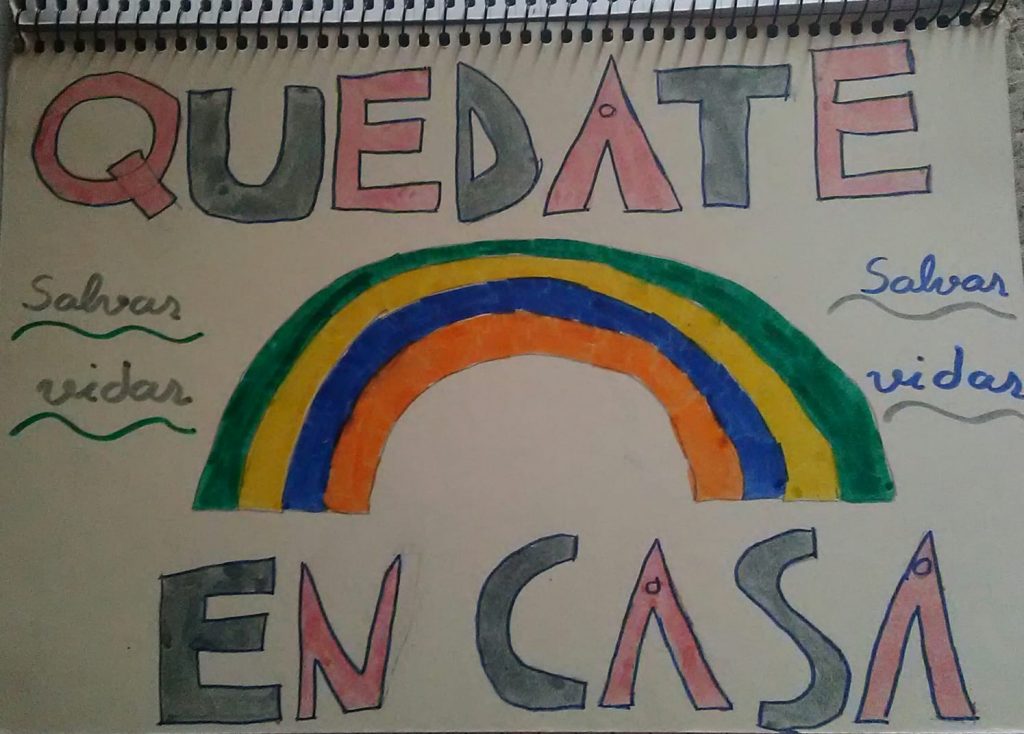 QUEDATE
Salvas
vidas
Salvas
vidas
EN CASA